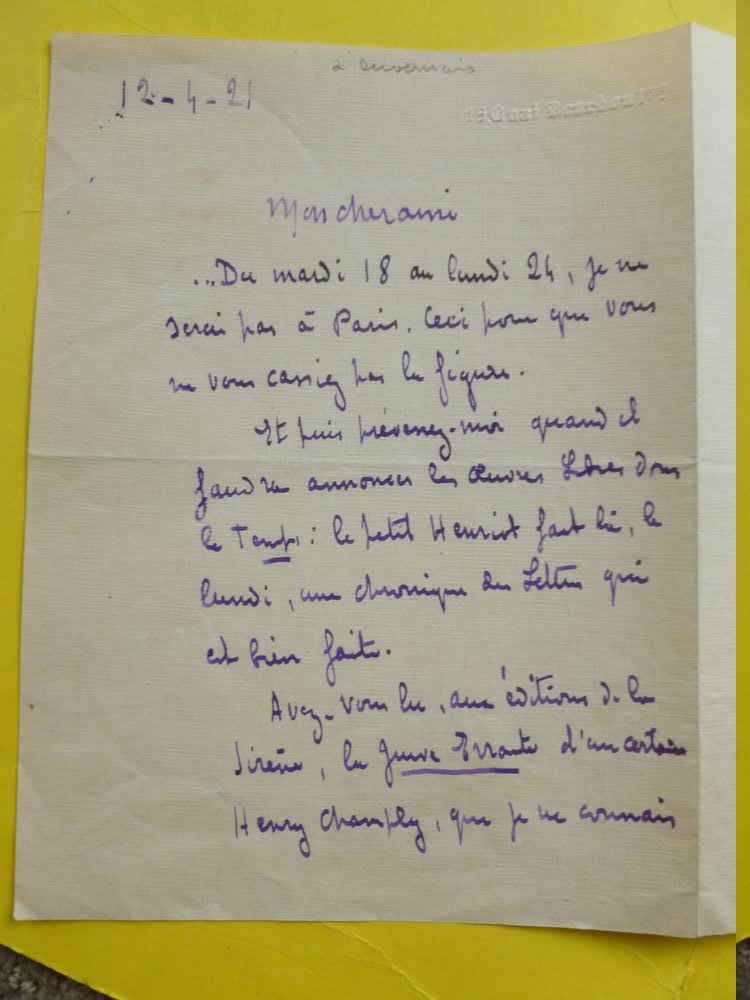 à Duvernois
12-4-21
15 Quai Bourbon IVe
Mon cher ami
...Du mardi 18 au lundi 24, je ne
serai pas à Paris. Ceci pour que vous
ne vous cassiez pas la figure.
Et puis prévenez-moi quand il
faudra annoncer les Œuvres Libres dans
le Temps : le petit Henriot fait là, le
lundi, une chronique des Lettres qui
est bien faite.
Avez-vous lu, aux éditions de la
Sirène, la Juive Errante d'un certain
Henry Champly, que je ne connais